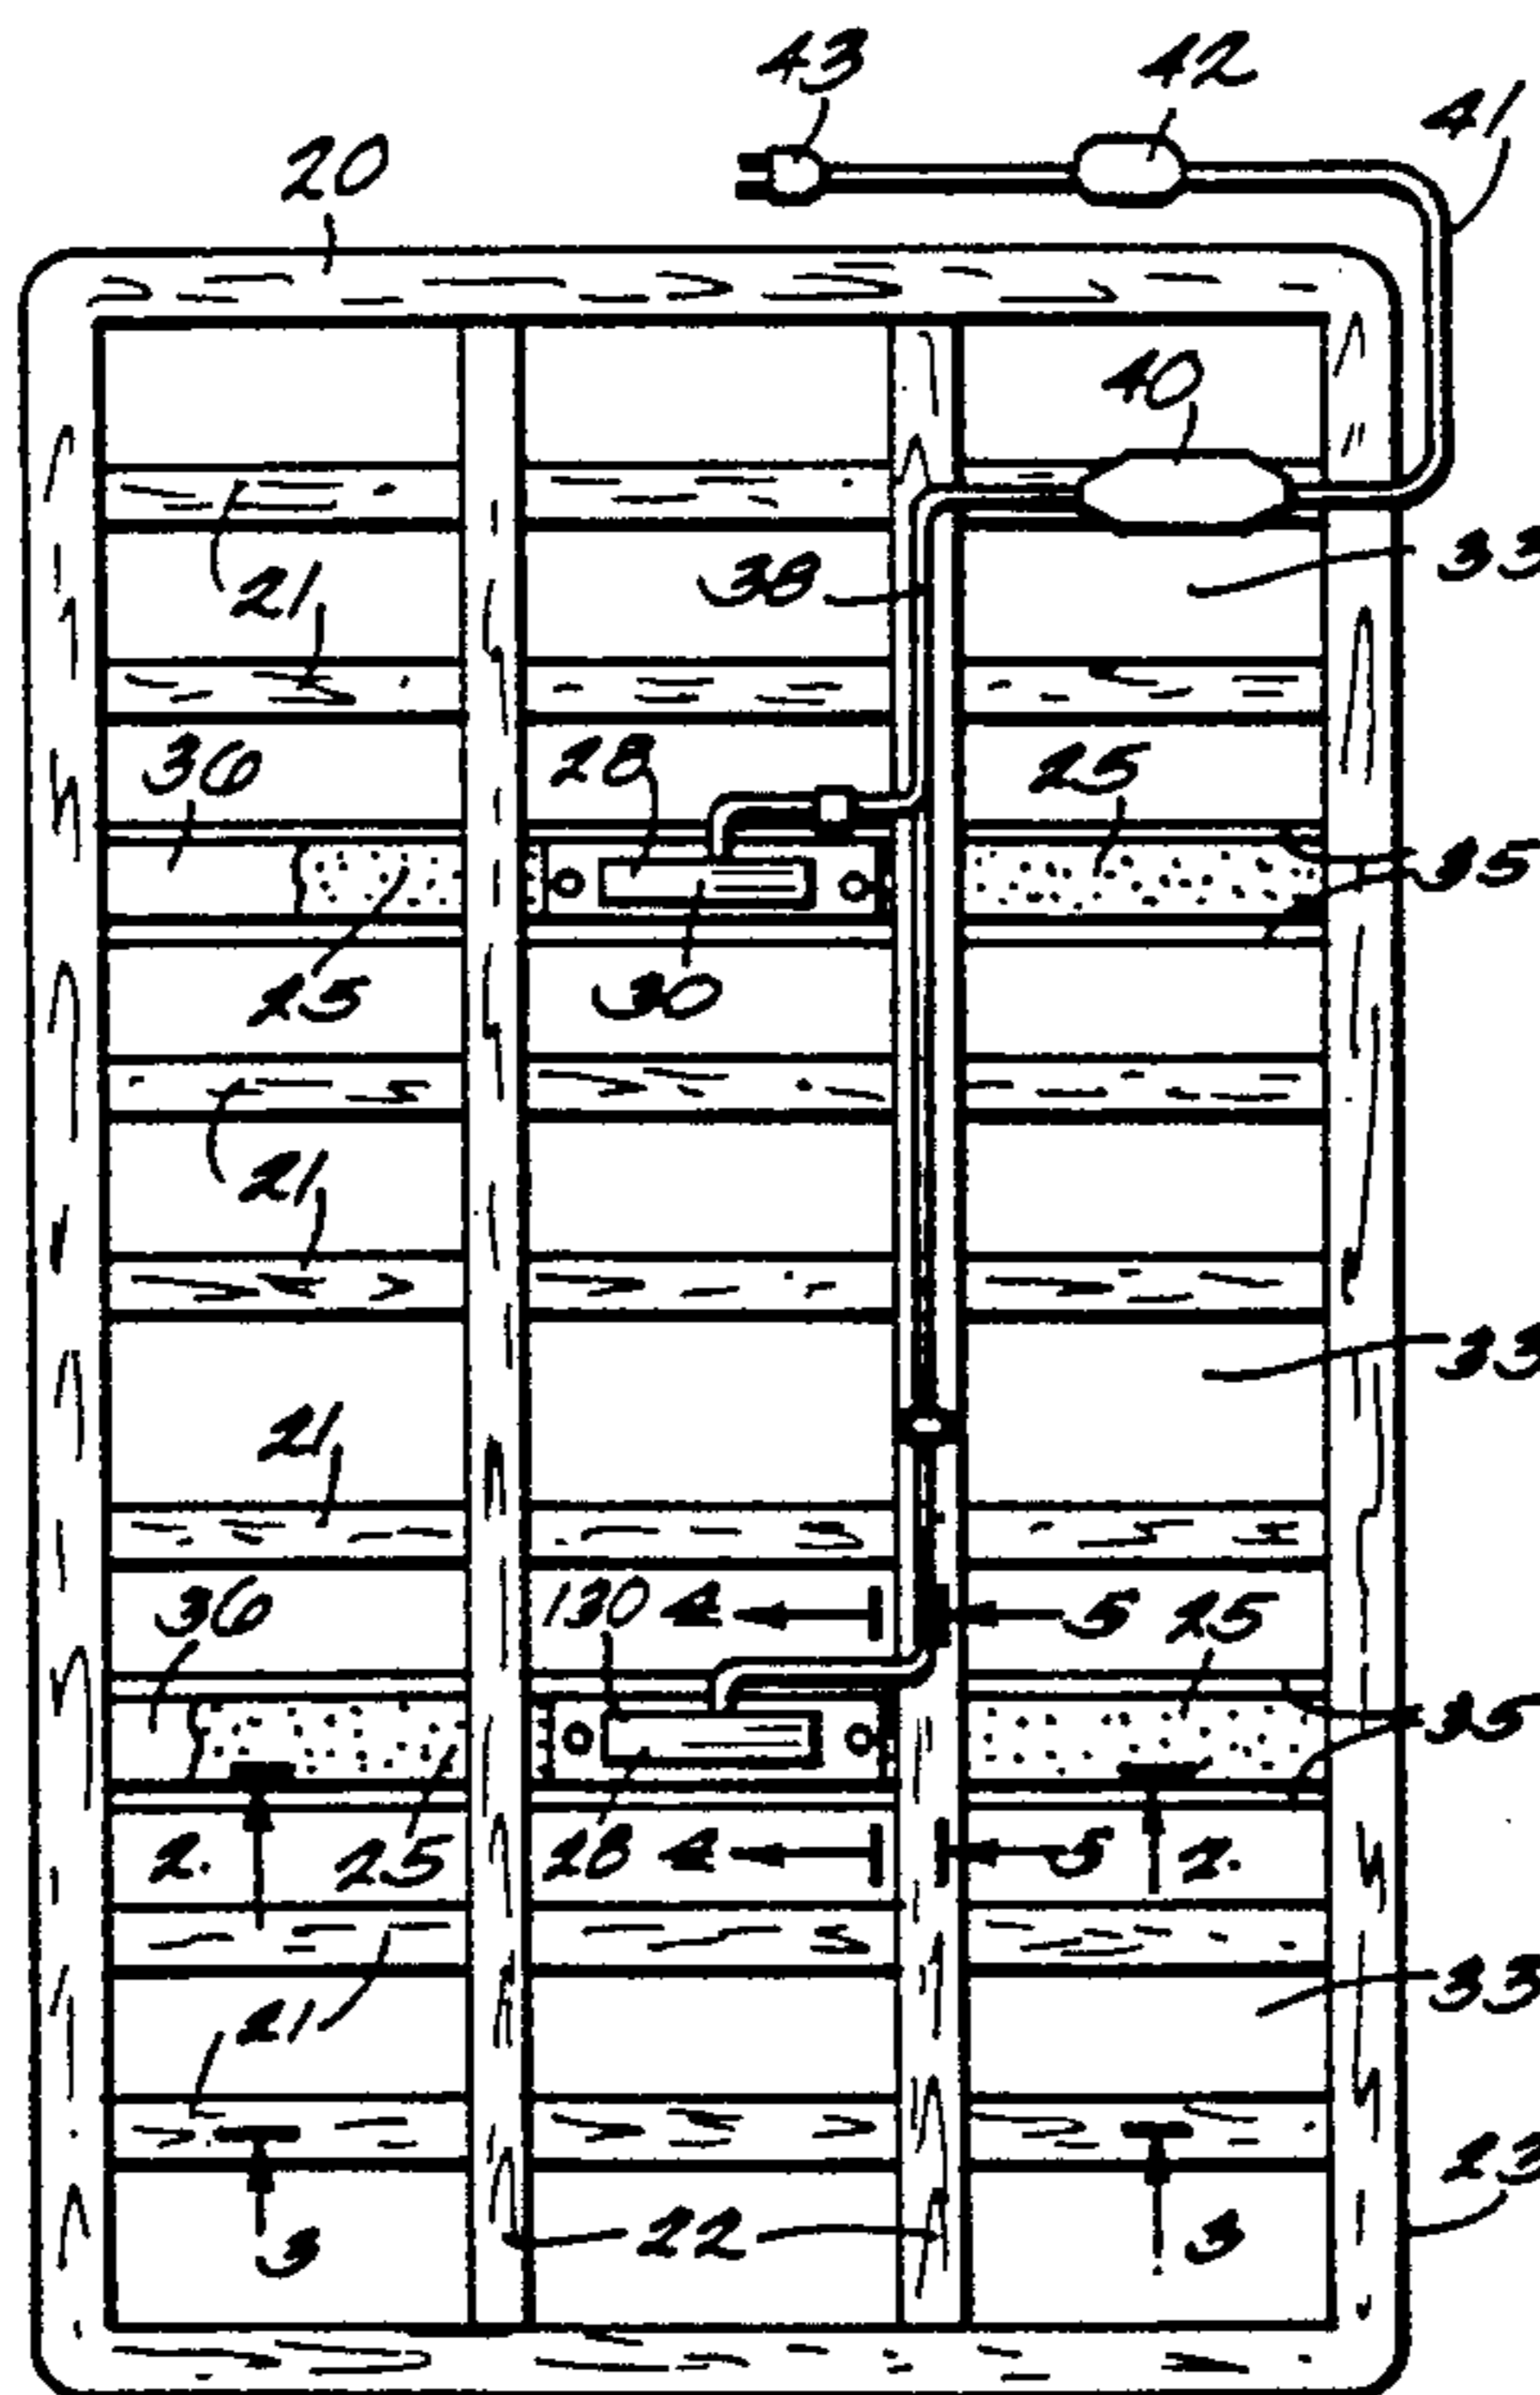 43 42 41
20
40
33
38
21
36 28 25
35
25 30
21
33
21
36 130 4 5 25
35
2. 25 28 4 5 2.
33
21
23
3 22 3